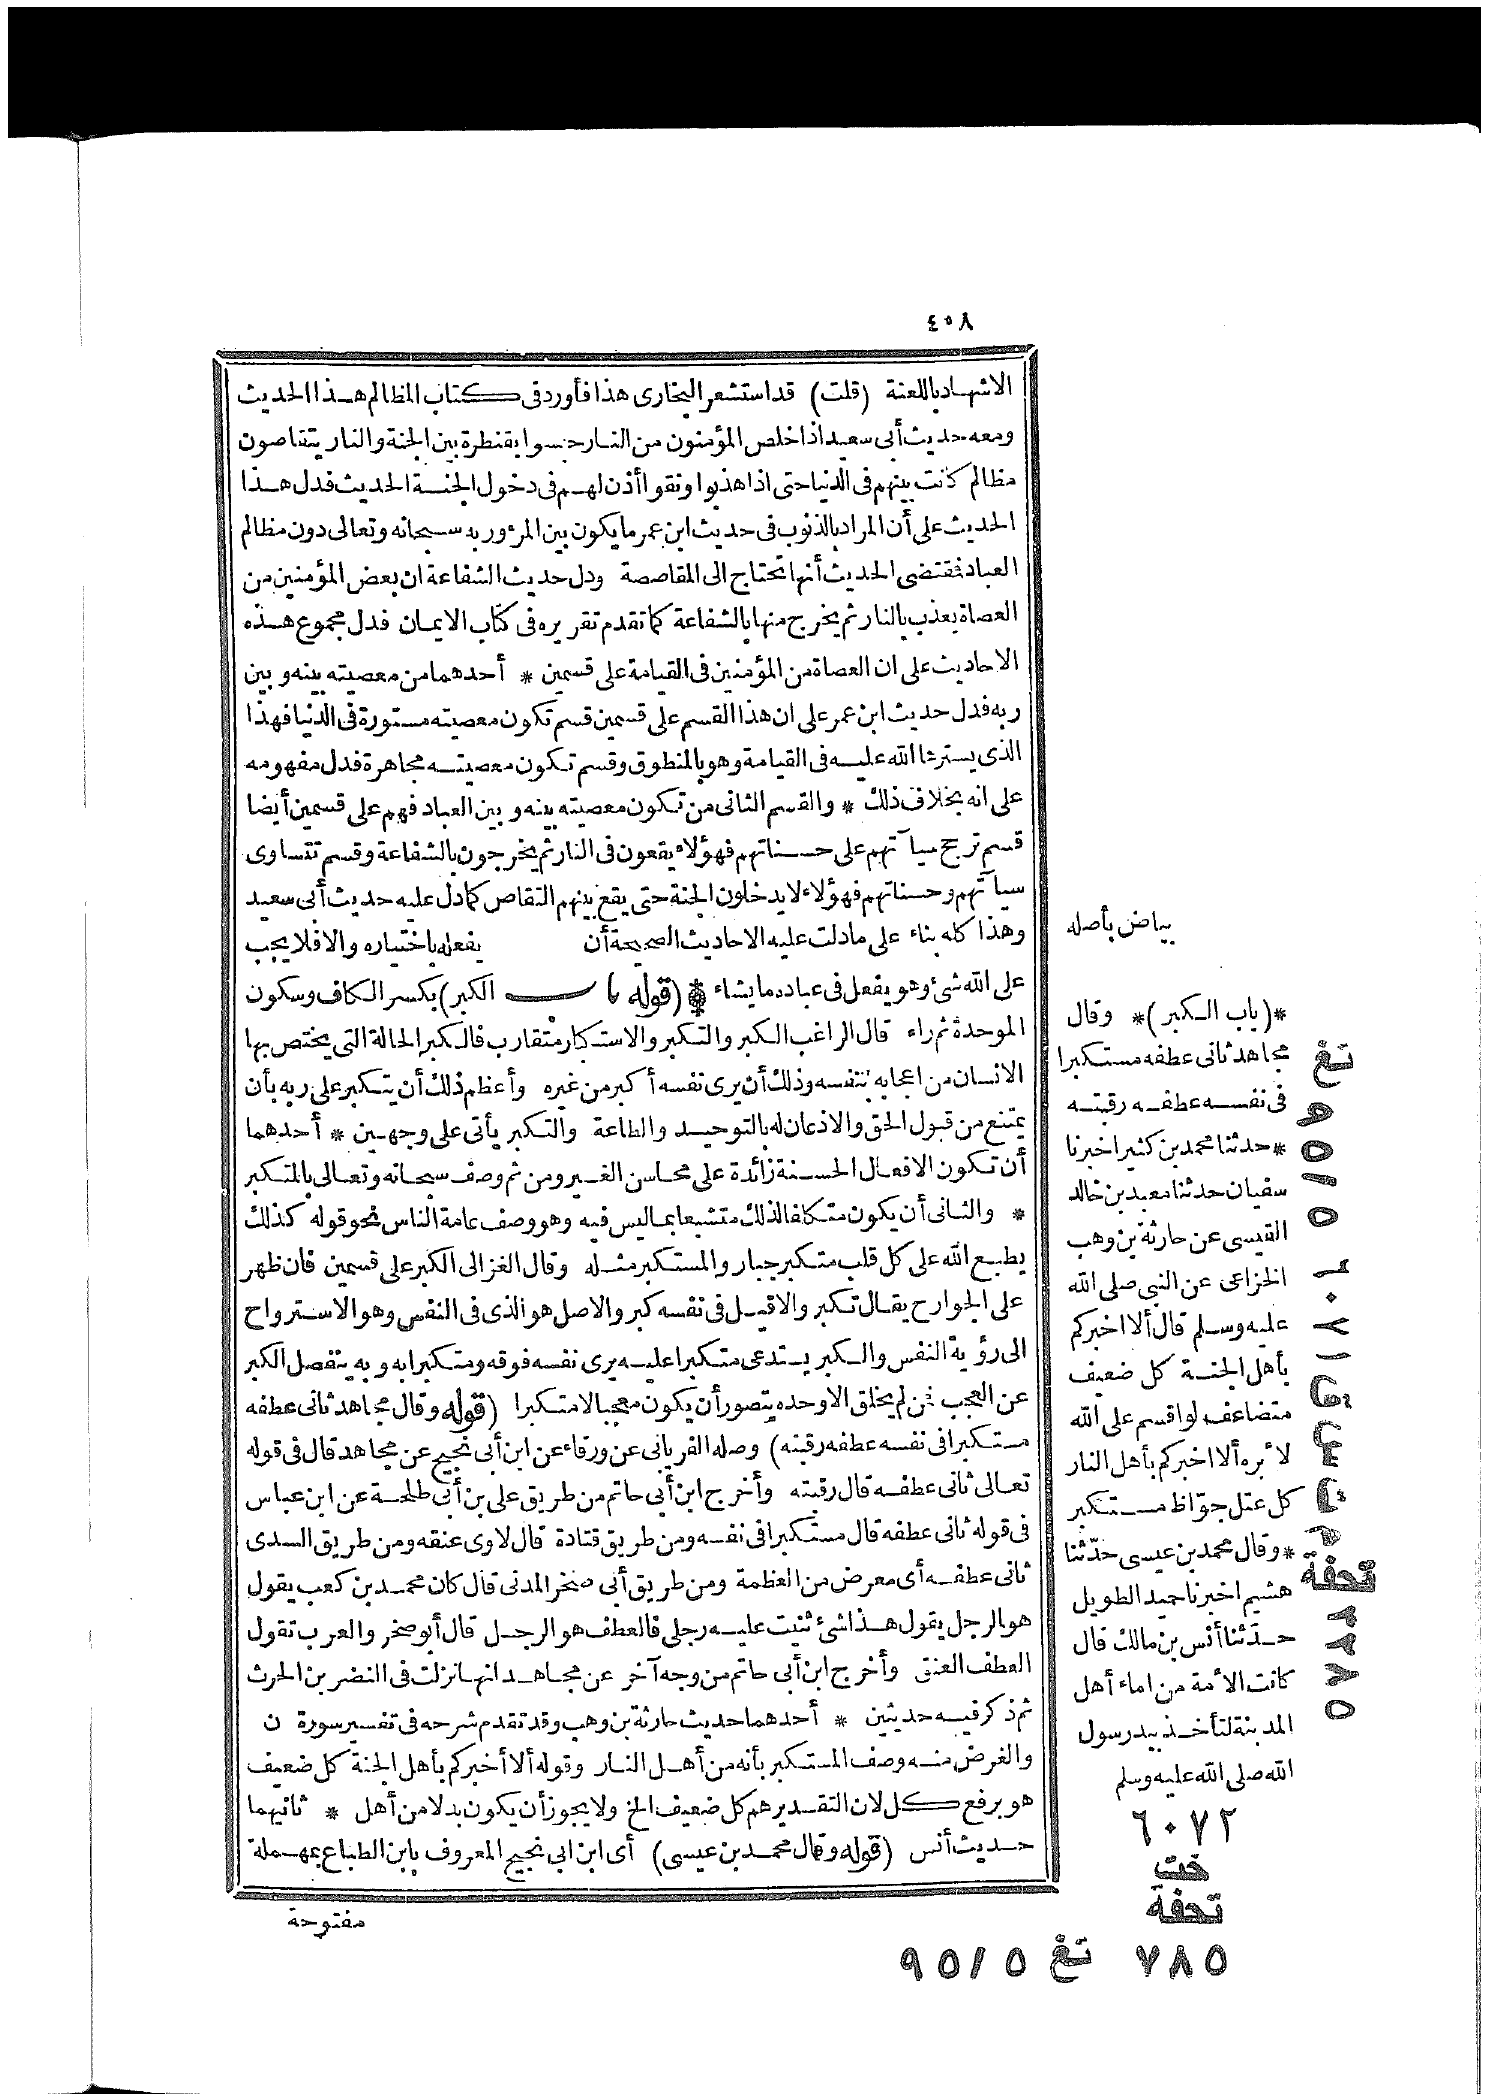 ٤٥٨
الاشهاد باللعنة (قلت) قد استشعر البخارى هذا فأورد فى كتاب المظالم هذا الحديث
ومعه حديث أبى سعيد اذا خلص المؤمنون من النار حبسوا بقنطرة بين الجنة والنار يتقاصون
مظالم كانت بينهم فى الدنيا حتى اذا هذبوا ونقوا أذن لهم فى دخول الجنة الحديث فدل هذا
الحديث على أن المراد بالذنوب فى حديث ابن عمر ما يكون بين المرء وربه سبحانه وتعالى دون مظالم
العباد فمقتضى الحديث أنها تحتاج الى المقاصصة ودل حديث الشفاعة ان بعض المؤمنين من
العصاة يعذب بالنار ثم يخرج منها بالشفاعة كما تقدم تقريره فى كتاب الايمان فدل مجموع هذه
الاحاديث على ان العصاة من المؤمنين فى القيامة على قسمين * أحدهما من معصيته بينه وبين
ربه فدل حديث ابن عمر على ان هذا القسم على قسمين قسم تكون معصيته مستورة فى الدنيا فهذا
الذى يسترها الله عليه فى القيامة وهو بالمنطوق وقسم تكون معصيته مجاهرة فدل مفهومه
على انه بخلاف ذلك * والقسم الثانى من تكون معصيته بينه وبين العباد فهم على قسمين أيضا
قسم ترجح سيآتهم على حسناتهم فهؤلاء يقعون فى النار ثم يخرجون بالشفاعة وقسم تتساوى
سيآتهم وحسناتهم فهؤلاء لا يدخلون الجنة حتى يقع بينهم التقاص كما دل عليه حديث أبى سعيد
وهذا كله بناء على ما دلت عليه الاحاديث الصحيحة أن يفعله باختياره والا فلا يجب
على الله شئ وهو يفعل فى عباده ما يشاء * (قوله باب الكبر) بكسر الكاف وسكون
الموحدة ثم راء قال الراغب الكبر والتكبر والاستكبار متقارب فالكبر الحالة التى يختص بها
الانسان من اعجابه بنفسه وذلك أن يرى نفسه أكبر من غيره وأعظم ذلك أن يتكبر على ربه بأن
يمتنع من قبول الحق والاذعان له بالتوحيد والطاعة والتكبر يأتى على وجهين * أحدهما
أن تكون الافعال الحسنة زائدة على محاسن الغير ومن ثم وصف سبحانه وتعالى بالمتكبر
* والثانى أن يكون متكلفا لذلك متشبعا بما ليس فيه وهو وصف عامة الناس نحو قوله كذلك
يطبع الله على كل قلب متكبر جبار والمستكبر مثله وقال الغزالى الكبر على قسمين فان ظهر
على الجوارح يقال تكبر والا قيل فى نفسه كبر والاصل هو الذى فى النفس وهو الاسترواح
الى رؤية النفس والكبر يستدعى متكبرا عليه يرى نفسه فوقه ومتكبرا به وبه ينفصل الكبر
عن العجب فمن لم يخلق الا وحده يتصور أن يكون معجبا لا متكبرا (قوله وقال مجاهد ثانى عطفه
مستكبرا فى نفسه عطفه رقبته) وصله الفريابى عن ورقاء عن ابن أبى نجيح عن مجاهد قال فى قوله
تعالى ثانى عطفه قال رقبته وأخرج ابن أبى حاتم من طريق على بن أبى طلحة عن ابن عباس
فى قوله ثانى عطفه قال مستكبرا فى نفسه ومن طريق قتادة قال لاوى عنقه ومن طريق السدى
ثانى عطفه أى معرض من العظمة ومن طريق أبى صخر المدنى قال كان محمد بن كعب يقول
هو الرجل يقول هذا شئ ثنيت عليه رجلى فالعطف هو الرجل قال أبو صخر والعرب تقول
العطف العنق وأخرج ابن أبى حاتم من وجه آخر عن مجاهد انها نزلت فى النضر بن الحرث
ثم ذكر فيه حديثين * أحدهما حديث حارثة بن وهب وقد تقدم شرحه فى تفسير سورة ن
والغرض منه وصف المستكبر بأنه من أهل النار وقوله ألا أخبركم بأهل الجنة كل ضعيف
هو برفع كل لان التقدير هم كل ضعيف الخ ولا يجوز أن يكون بدلا من أهل * ثانيهما
حديث أنس (قوله وقال محمد بن عيسى) أى ابن ابى نجيح المعروف بابن الطباع بمهملة
مفتوحة
بياض بأصله
*(باب الكبر)* وقال
مجاهد ثانى عطفه مستكبرا
فى نفسه عطفه رقبته
* حدثنا محمد بن كثير اخبرنا
سفيان حدثنا معبد بن خالد
القيسى عن حارثة بن وهب
الخزاعى عن النبى صلى الله
عليه وسلم قال ألا اخبركم
بأهل الجنة كل ضعيف
متضاعف لو اقسم على الله
لأبره ألا اخبركم بأهل النار
كل عتل جواظ مستكبر
* وقال محمد بن عيسى حدّثنا
هشيم اخبرنا حميد الطويل
حدّثنا أنس بن مالك قال
كانت الأمة من اماء أهل
المدينة لتأخذ بيد رسول
الله صلى الله عليه وسلم
٦٠٧٢
خت
تحفة
٧٨٥ تغ ٩٥/٥
تغ
٩٥/٥
٦٠٧١
م ت س ق
تحفة
٣٢٨٥